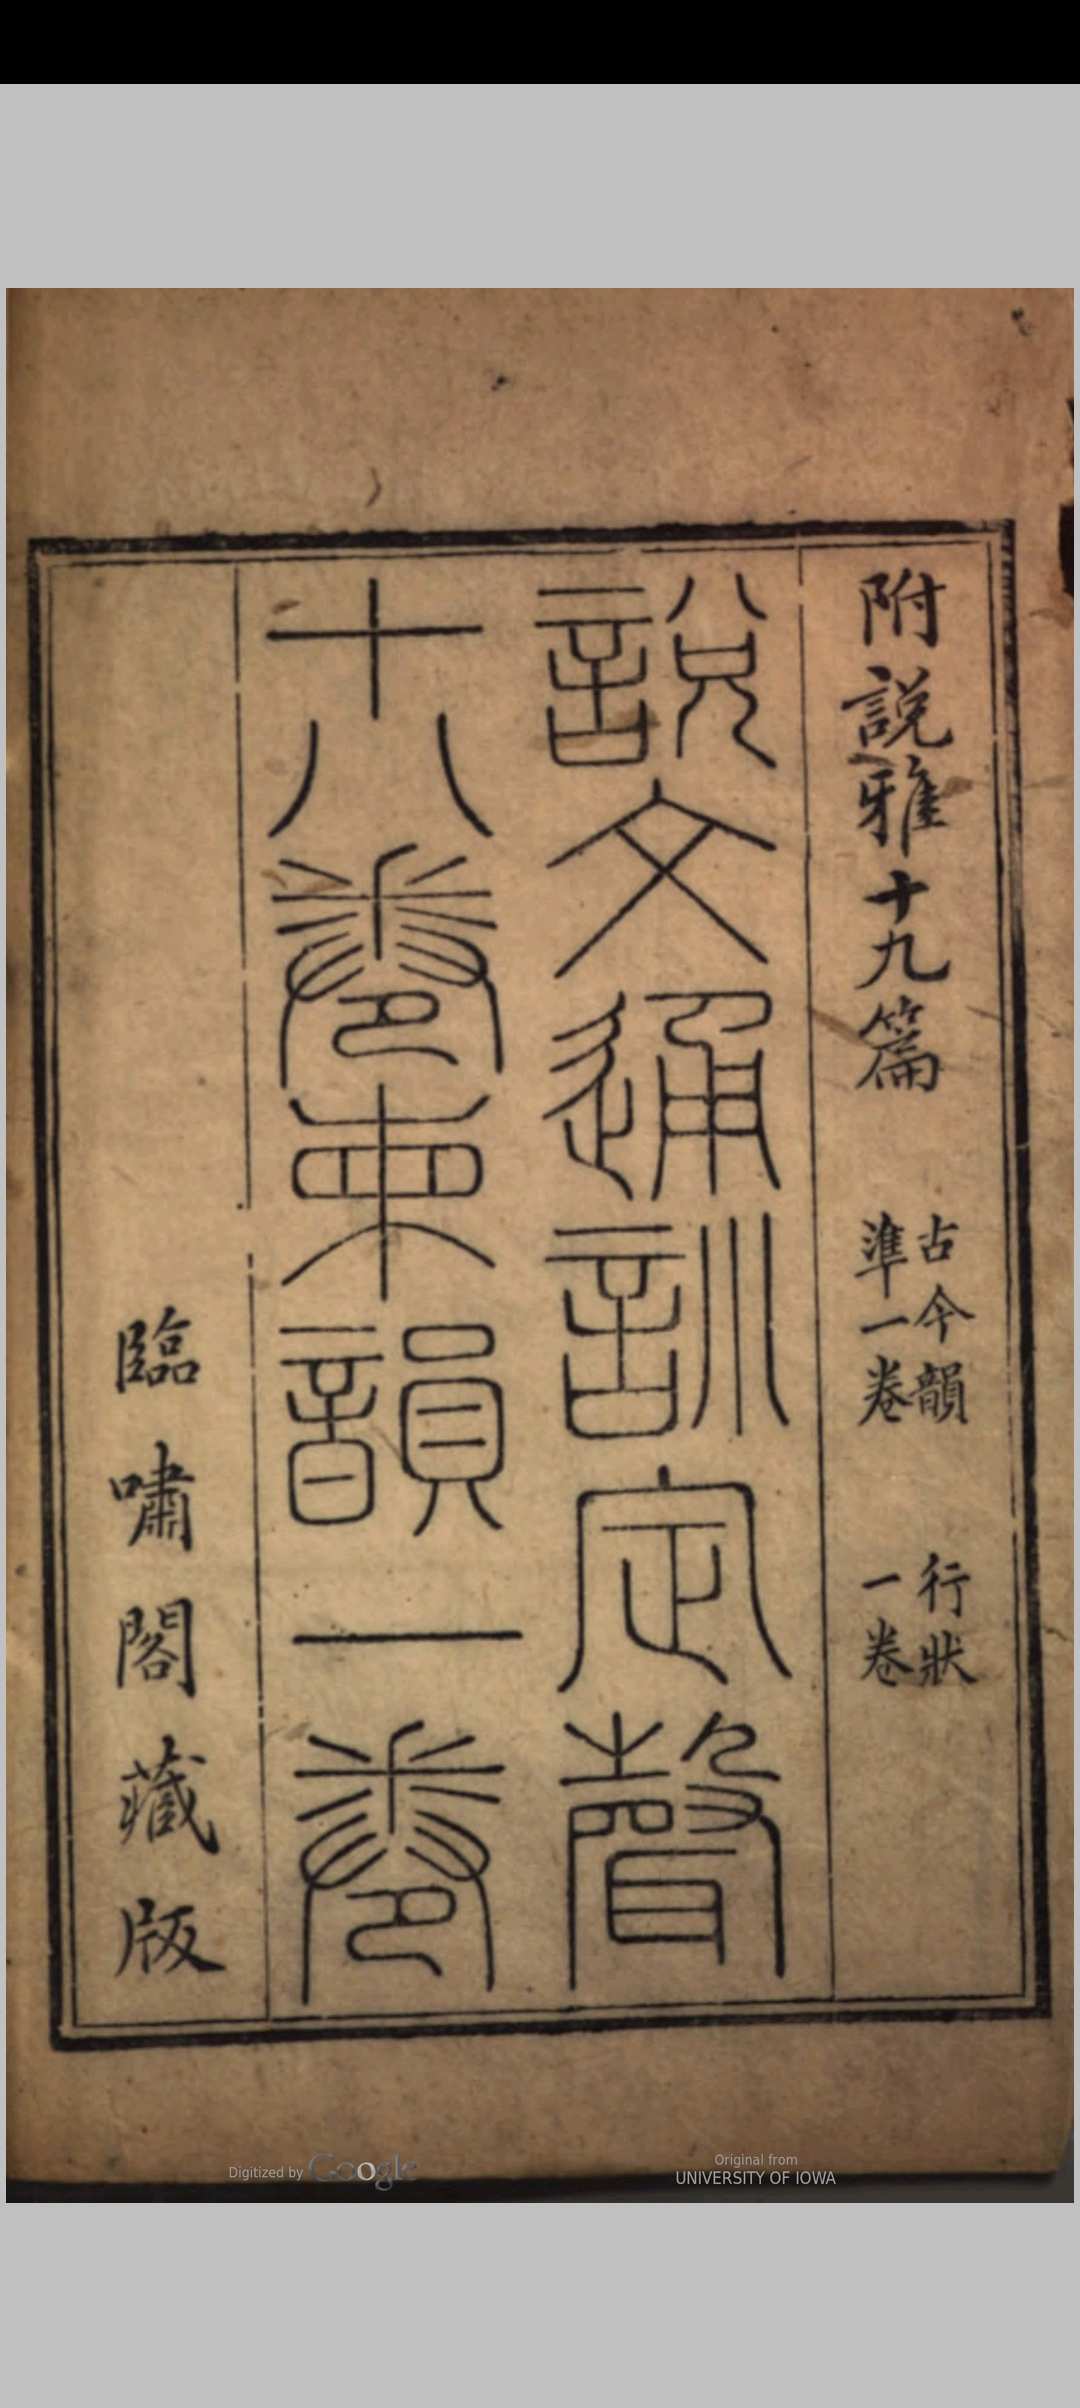 附說雅十九篇 古今韻準一卷 行狀一卷
說文通訓定聲
十八卷柬韻一卷
臨嘯閣藏版
Digitized by Google
Original from
UNIVERSITY OF IOWA